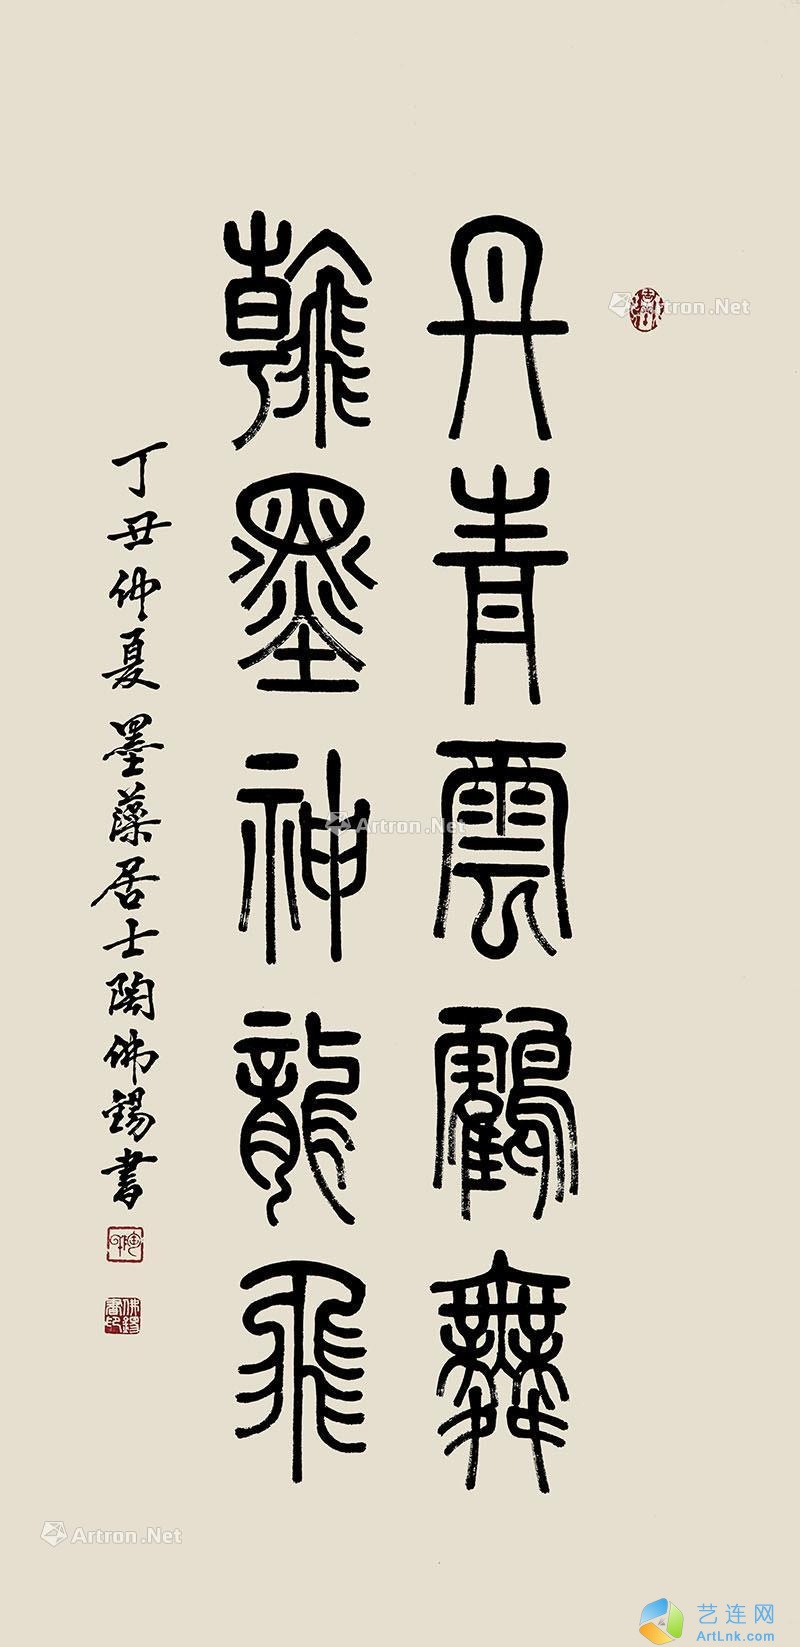 丹青雲鶴舞
翰墨神龍飛
丁丑仲夏 墨藻居士陶佛錫書
Artron.Net
Artron.Net
Artron.Net
艺连网
ArtLnk.com